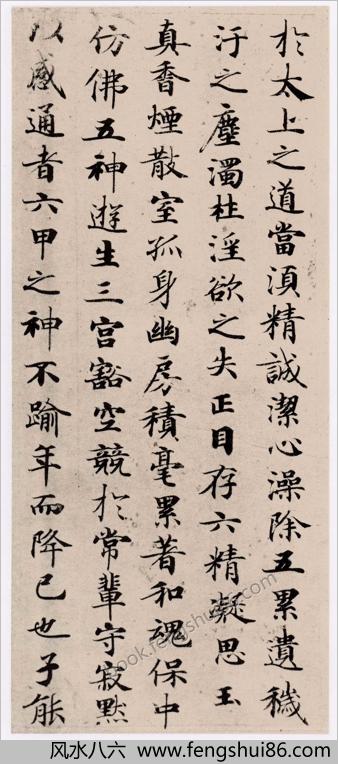 於太上之道當湏精誠潔心澡除五累遺穢
汙之塵濁杜淫欲之失正目存六精凝思玉
真香煙散室孤身幽房積毫累著和魂保中
仿佛五神遊生三宫豁空競於常輩守寂默
以感通者六甲之神不踰年而降已也子能
book.fengshui86.com
风水八六 www.fengshui86.com